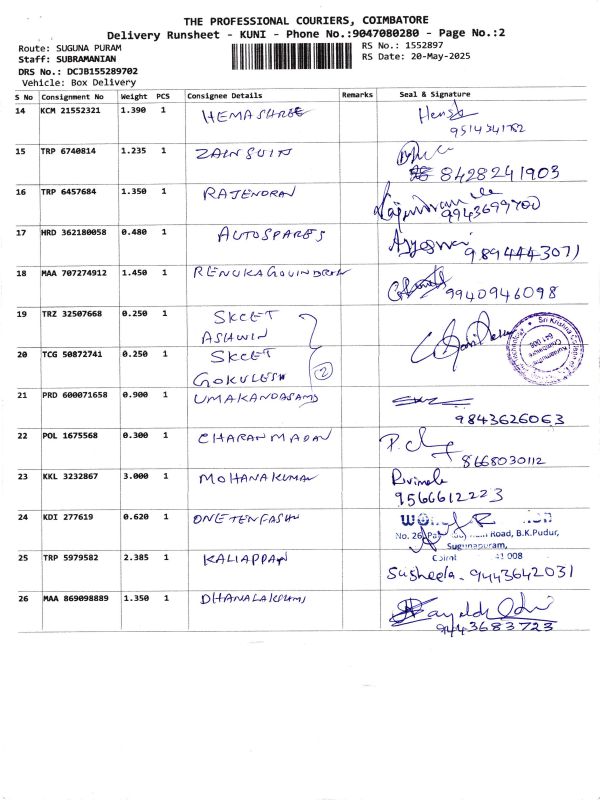 THE PROFESSIONAL COURIERS, COIMBATORE
Delivery Runsheet - KUNI - Phone No.:9047080280 - Page No.:2
Route: SUGUNA PURAM
RS No.: 1552897
Staff: SUBRAMANIAN
RS Date: 20-May-2025
DRS No.: DCJB155289702
Vehicle: Box Delivery
S No Consignment No Weight PCS Consignee Details Remarks Seal & Signature
14 KCM 21552321 1.390 1 HEMASHREE
9514341782
15 TRP 6740814 1.235 1 ZAINSUIT
8428241903
16 TRP 6457684 1.350 1 RAJENDRAN
9943699700
17 HRD 362180058 0.480 1 AUTOSPARES
9894443071
18 MAA 707274912 1.450 1 RENUKAGOVINDRAN
9940946098
19 TRZ 32507668 0.250 1 SKCET
ASHWIN
20 TCG 50872741 0.250 1 SKCET
GOKULESH 2
21 PRD 600071658 0.900 1 UMAKANDASAMY
9843626063
22 POL 1675568 0.300 1 CHARAN MADAN
8668030112
23 KKL 3232867 3.000 1 MOHANAKUMAR
9566612223
24 KDI 277619 0.620 1 ONETENFASHN
No. 26, Road, B.K.Pudur,
Sugunapuram,
25 TRP 5979582 2.385 1 KALIAPPAN
Susheela - 9443642031
26 MAA 869098889 1.350 1 DHANALAKSHMI
9443683723